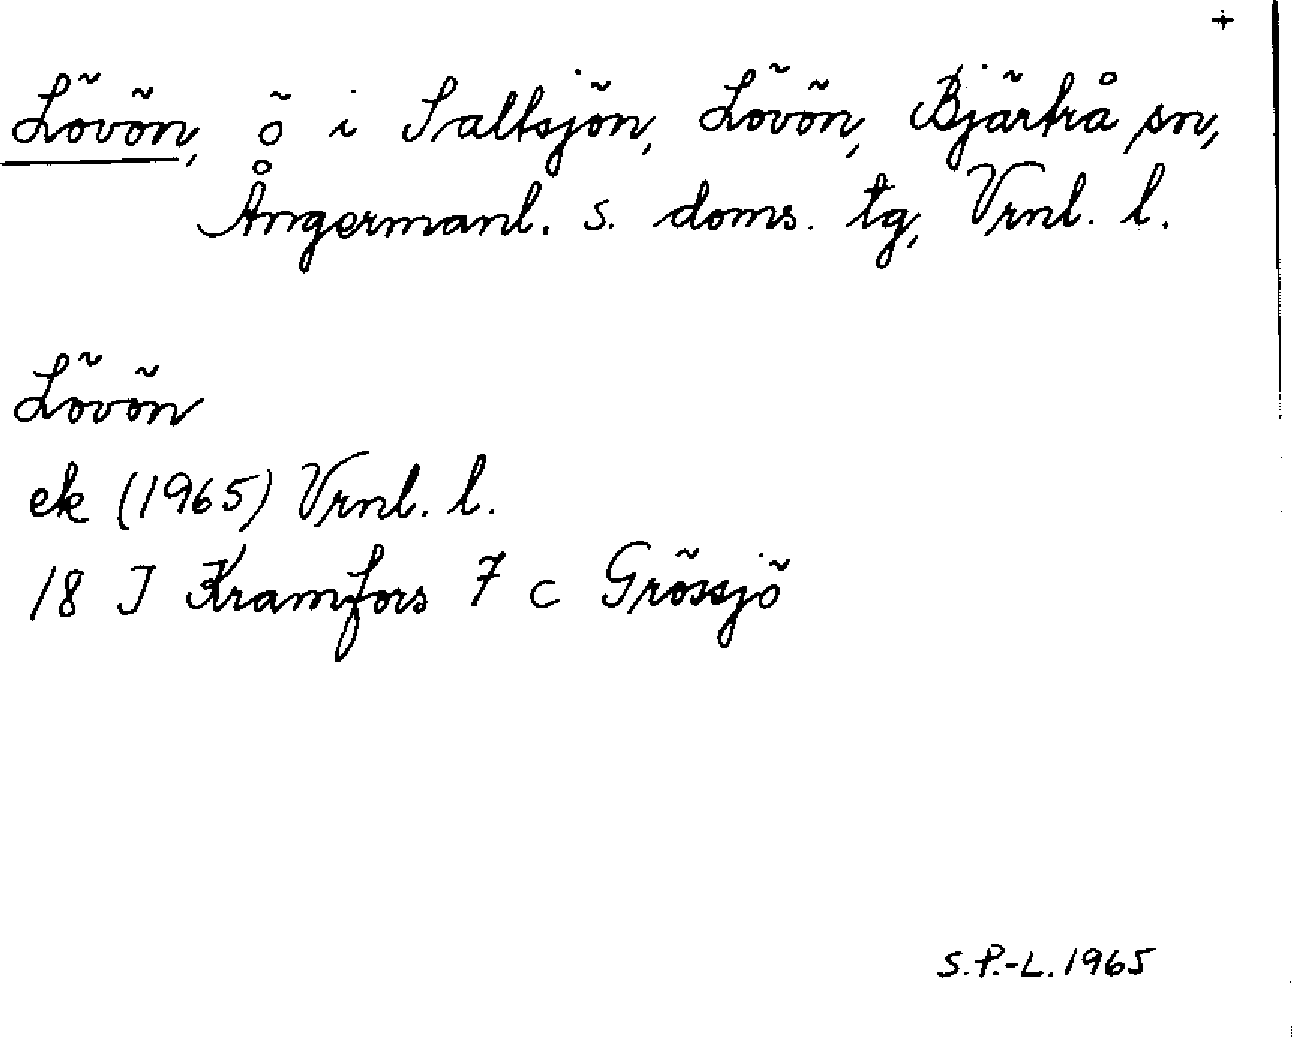 +
Lövön, ö i Saltsjön, Lövön, Bjärtrå sn,
Ångermanl. s. doms. tg, Vrnl. l.
Lövön
ek (1965) Vrnl. l.
18 J Kramfors 7 c Grössjö
S.P.-L. 1965